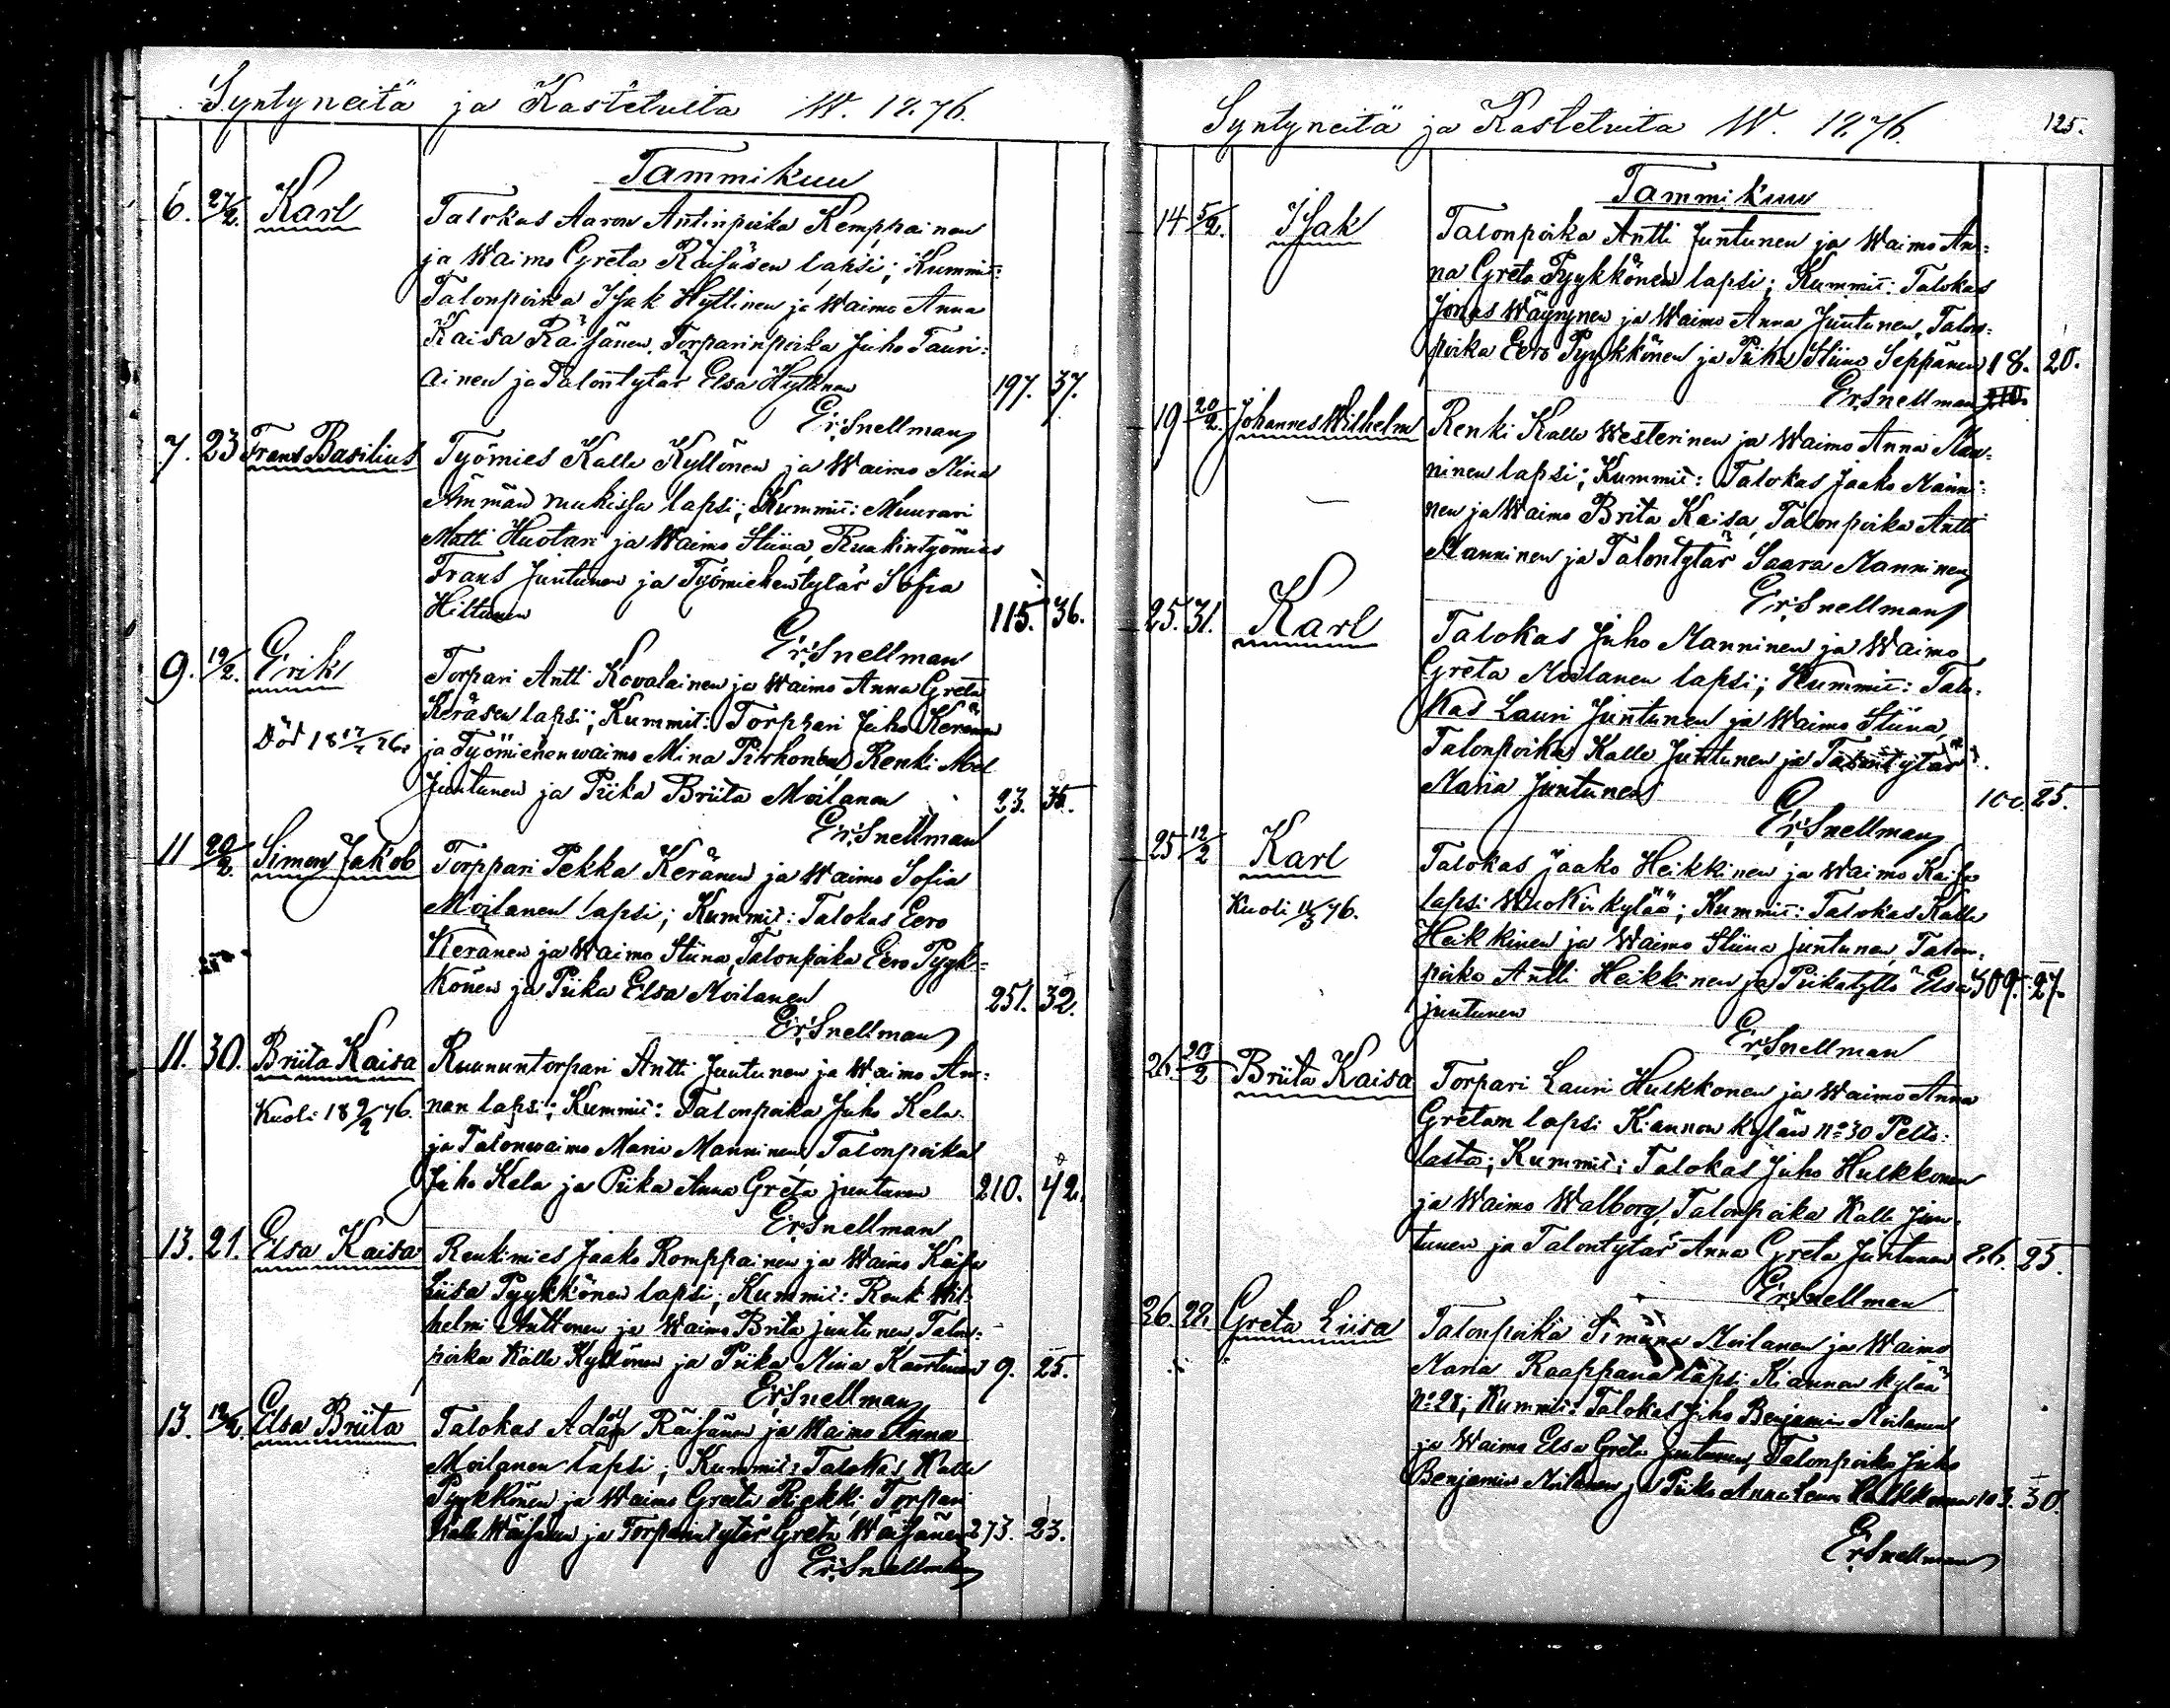 Syntyneitä ja Kastetuita W. 1876.
Tammikuu
6. 27/2. Karl Talokas Aaron Antinpoika Kemppainen
ja Waimo Greta Räisäsen lapsi; Kummit:
Talonpoika Isak Hyttinen ja Waimo Anna
Kaisa Räisänen, Torparinpoika Juho Tauri-
ainen ja Talontytär Elsa Hyttinen 197. 37.
Er. Snellman
7. 23 Frans Basilius Työmies Kalle Kyllönen ja Waimo Mina
Ämmän ruukissa lapsi; Kummit: Muurari
Matti Huotari ja Waimo Stiina, Ruukintyömies
Frans Juntunen ja Työmiehentytär Sofia
Hiltunen 115. 36.
Er. Snellman
9. 19/2. Erik Torpari Antti Kovalainen ja Waimo Anna Greta
Keräsen lapsi; Kummit: Torppari Juho Keränen
Död 18 17/7 76. ja Työmiehenwaimo Mina Pirhonen, Renki Abel
Juntunen ja Piika Briita Moilanen 23. 35.
Er. Snellman
11 20/2. Simon Jakob Torppari Pekka Keränen ja Waimo Sofia
Moilanen lapsi; Kummit: Talokas Eero
Keränen ja Waimo Stiina, Talonpoika Eero Pyyk-
könen ja Piika Elsa Moilanen 251. 32.
Er. Snellman
11. 30. Briita Kaisa Ruununtorpari Antti Juntunen ja Waimo An-
Kuoli 18 9/2 76. nan lapsi; Kummit: Talonpoika Juho Kela
ja Talonwaimo Maria Manninen, Talonpoika
Juho Kela ja Piika Anna Greta Juntunen 210. 42.
Er. Snellman
13. 21. Elsa Kaisa Renkimies Jaako Romppainen ja Waimo Kaisa
Liisa Pyykkönen lapsi; Kummit: Renki Wil-
helmi Anttonen ja Waimo Brita Juntunen, Talon-
poika Kalle Kyllönen ja Piika Mina Karttunen 9. 25.
Er. Snellman
13. 19/2. Elsa Briita Talokas Adam Räisänen ja Waimo Anna
Moilanen lapsi; Kummit: Talokas Kalle
Pyykkönen ja Waimo Greta Riekki Torpari
Kalle Wäisänen ja Torparintytär Greta Wäisänen 273. 23.
Er. Snellman
Syntyneitä ja Kastetuita W. 1876. 125.
Tammikuu
14 5/2. Isak Talonpoika Antti Juntunen ja Waimo An-
na Greta Pyykkönen lapsi; Kummit: Talokas
Jonas Wäyrynen ja Waimo Anna Juntunen, Talon-
poika Eero Pyykkönen ja Piika Stiina Seppänen 18. 20.
Er. Snellman
19 20/2. Johannes Wilhelm Renki Kalle Westerinen ja Waimo Anna Man-
ninen lapsi; Kummit: Talokas Jaako Manni-
nen ja Waimo Brita Kaisa, Talonpoika Antti
Manninen ja Talontytär Saara Manninen
Er. Snellman
25. 31. Karl Talokas Juho Manninen ja Waimo
Greta Moilanen lapsi; Kummit: Talo-
kas Lauri Juntunen ja Waimo Stiina,
Talonpoika Kalle Juntunen ja Talontytär
Maria Juntunen 100. 25.
Er. Snellman
25 12/2 Karl Talokas Jaako Heikkinen ja Waimo Kaisa
Kuoli 11/3 76. lapsi Wuokin kylää; Kummit: Talokas Kalle
Heikkinen ja Waimo Stiina Juntunen, Talon-
poika Antti Heikkinen ja Piikatyttö Elsa 309. 27.
Juntunen
Er. Snellman
26. 20/2 Briita Kaisa Torpari Lauri Hulkkonen ja Waimo Anna
Gretan lapsi Kiannon kylän No 30 Pelto-
lasta; Kummit: Talokas Juho Hulkkonen
ja Waimo Walborg, Talonpoika Kalle Jun-
tunen ja Talontytär Anna Greta Juntunen 86. 25.
Er. Snellman
26. 29. Greta Liisa Talonpoika Simana Moilanen ja Waimo
Maria Raappana lapsi Kiannon kylää
No 28; Kummit: Talokas Juho Benjamin Moilanen
ja Waimo Elsa Greta Juntunen, Talonpoika Juho
Benjamin Moilanen ja Piika Anna Leena Hulkkonen 103. 30.
Er. Snellman